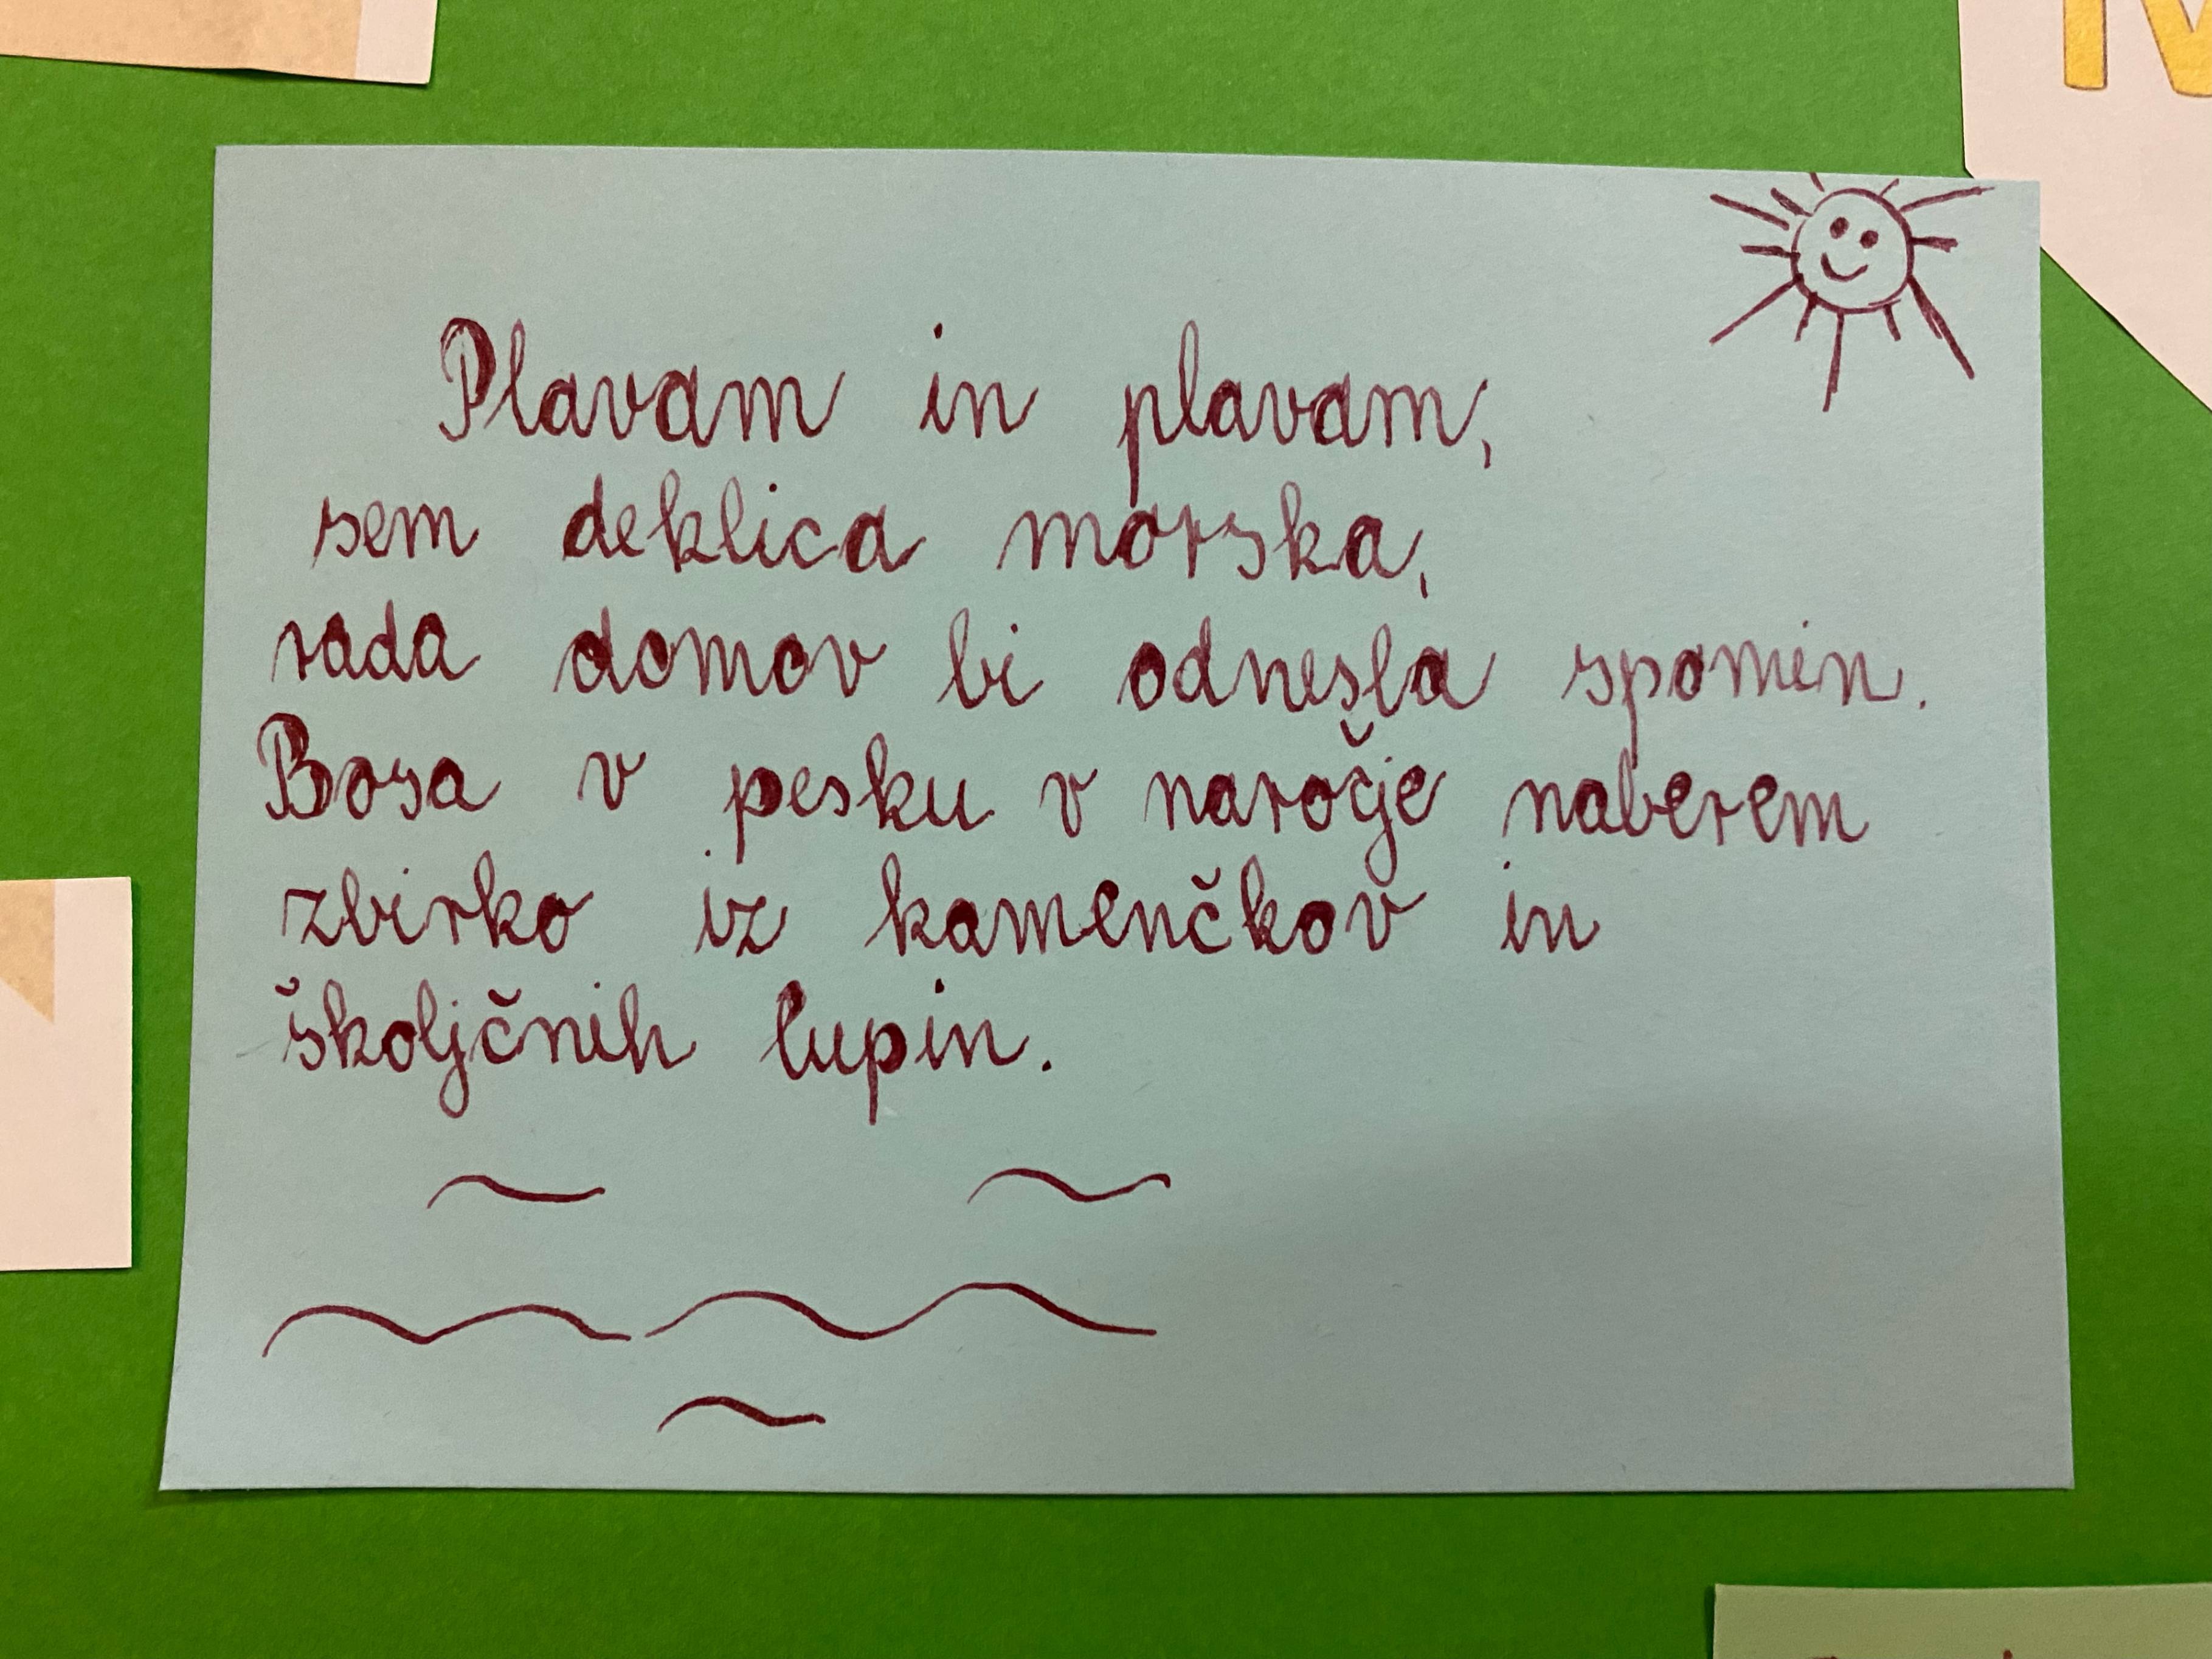 Plavam in plavam,
sem deklica morska,
rada domov bi odnesla spomin.
Bosa v pesku v naročje naberem
zbirko iz kamenčkov in
školjčnih lupin.